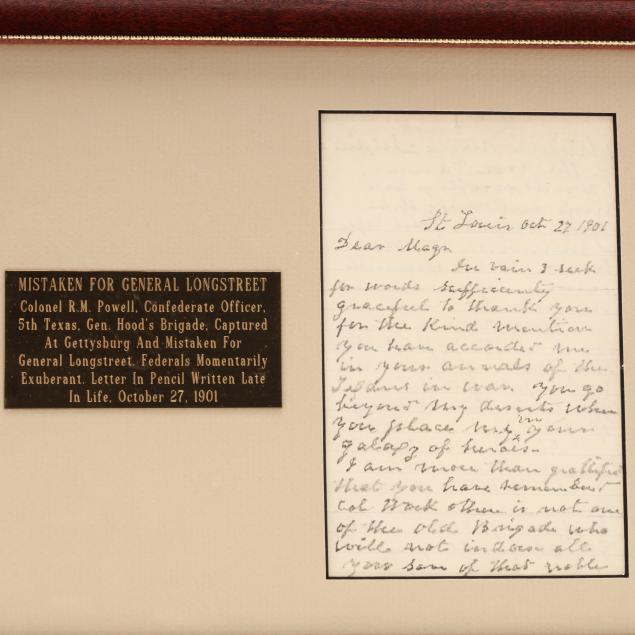 MISTAKEN FOR GENERAL LONGSTREET
Colonel R.M. Powell, Confederate Officer,
5th Texas, Gen. Hood's Brigade, Captured
At Gettysburg And Mistaken For
General Longstreet, Federals Momentarily
Exuberant. Letter In Pencil Written Late
In Life, October 27, 1901
St Louis Oct 27 1901
Dear
In vain I seek
for words sufficiently
graceful to thank you
for the kind mention
you have accorded me
in your annals of the
in war. You go
beyond my deserts when
you place me in your
galaxy of heroes.
I am more than gratified
that you have remembered
Col there is not one
of the old Brigade who
will not indorse all
you say of that noble